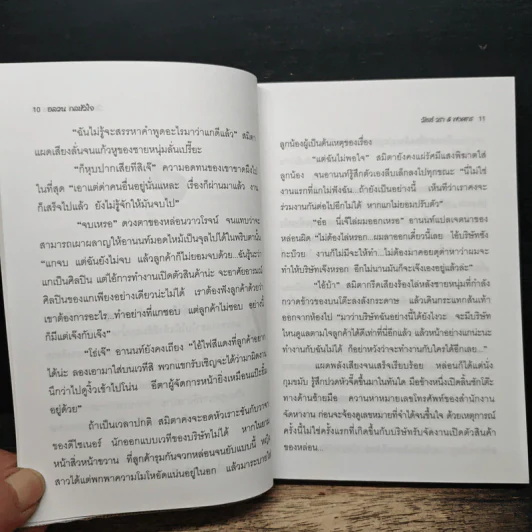 10 ถอดวน กลหัวใจ
"ฉันไม่รู้จะสรรหาคำพูดอะไรมาว่าแกดีแล้ว" สมิตา
แผดเสียงลั่นจนแก้วหูของชายหนุ่มลั่นเปรี๊ยะ
"ก็หุบปากเสียทีสิเจ๊" ความอดทนของเขาขาดผึงไป
ในที่สุด "เอาแต่ด่าคนอื่นอยู่นั่นแหละ เรื่องก็ผ่านมาแล้ว งาน
ก็เสร็จไปแล้ว ยังไม่รู้จักให้มันจบไป"
"จบเหรอ" ดวงตาของหล่อนวาวโรจน์ จนแทบว่าจะ
สามารถเผาผลาญให้อานนท์มอดไหม้เป็นจุลไปได้ในพริบตานั้น
"แกจบ แต่ฉันยังไม่จบ แล้วลูกค้าก็ไม่ยอมจบด้วย...ฉันรู้นะว่า
แกเป็นศิลปิน แต่ไอ้การทำงานเปิดตัวสินค้าน่ะ จะอาศัยอารมณ์
ศิลปินของแกเพียงอย่างเดียวน่ะไม่ได้ เราต้องฟังลูกค้าด้วยว่า
เขาต้องการอะไร...ทำอย่างที่แกชอบ แต่ลูกค้าไม่ชอบ อย่างนี้
ก็มีแต่เจ๊งกับเจ๊ง"
"โธ่เจ๊" อานนท์ยังคงเถียง "ไอ้ไฟสีแดงที่ลูกค้าอยาก
ได้น่ะ ลองเอามาใส่บนเวทีสิ พวกแขกรับเชิญจะได้ว่ามามีดงาน
นึกว่าไปดูงิ้วเข้าไปโน่น อีตาผู้จัดการหน้ายิ่งเหมือนแป๊ะยิ้ม
อยู่ด้วย"
ถ้าเป็นเวลาปกติ สมิตาคงจะอดหัวเราะขันกับวาจา
ของดีไซเนอร์ นักออกแบบเวทีของบริษัทไม่ได้ หากในยาม
หน้าสิ่วหน้าขวาน ที่ลูกค้ารุมกันจวกหล่อนจนยับแบบนี้ หญิง
สาวได้แต่พกพาความโมโหอัดแน่นอยู่ในอก แล้วมาระบายใส่
11
ลูกน้องผู้เป็นต้นเหตุของเรื่อง
"แต่ฉันไม่พอใจ" สมิตายังคงแม่รัศมีแสงพิฆาตใส่
ลูกน้อง จนอานนท์รู้สึกตัวเองลีบเล็กลงไปทุกขณะ "นี่ไม่ใช่
งานแรกที่แกไม่ฟังฉัน...ถ้ายังเป็นอย่างนี้ เห็นทีว่าเราคงจะ
ร่วมงานกันต่อไปอีกไม่ได้ หากแกไม่ยอมปรับตัว"
"อ๋อ นี่เจ๊ไล่ผมออกเหรอ" อานนท์แปลเจตนาของ
หล่อนผิด "ไม่ต้องไล่หรอก...ผมลาออกเดี๋ยวนี้เลย ไอ้บริษัทซัง
กะบ๊วย งานก็ไม่มีจะให้ทำ...ไม่ต้องมาคอยดุด่าหาว่าผมจะ
ทำให้บริษัทเจ๊งหรอก อีกไม่นานมันก็จะเจ๊งเองอยู่แล้วล่ะ"
"ไอ้บ้า" สมิตากรีดเสียงร้องไล่หลังชายหนุ่มที่กำลัง
กวาดข้าวของบนโต๊ะลงลังกระดาษ แล้วเดินกระแทกส้นเท้า
ออกจากห้องไป "มาว่าบริษัทฉันอย่างนี้ได้ยังไงวะ จะมีบริษัท
ไหนดูแลตามใจลูกค้าได้ดีเท่าที่นี่อีกแล้ว แล้วหน้าอย่างแกน่ะนะ
ทำงานกับฉันไม่ได้ ก็อย่าหวังว่าจะทำงานกับใครได้อีกเลย..."
แผดพลังเสียงจนเสร็จเรียบร้อย หล่อนก็ได้แต่นั่ง
กุมขมับ รู้สึกปวดหัวจี๊ดขึ้นมาในทันใด มือข้างหนึ่งเปิดลิ้นชักโต๊ะ
ทางด้านซ้ายมือ ควานหาหมายเลขโทรศัพท์ของสำนักงาน
จัดหางาน ก่อนจะจ้องดูเลขหมายที่จำได้จนขึ้นใจ ด้วยเหตุการณ์
ครั้งนี้ไม่ใช่ครั้งแรกที่เกิดขึ้นกับบริษัทรับจัดงานเปิดตัวสินค้า
ของหล่อน...